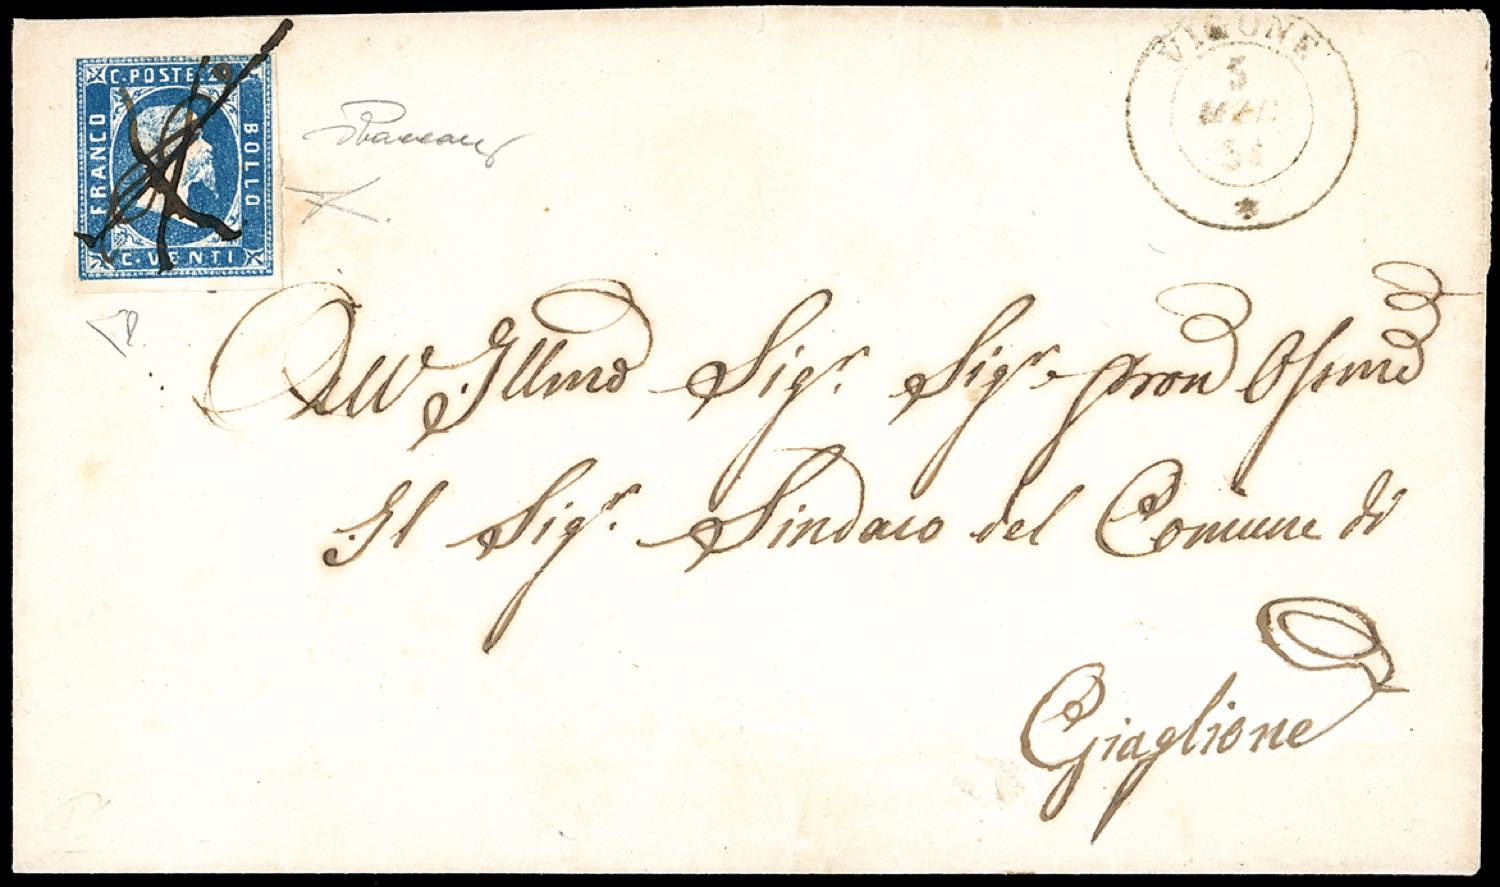 C. POSTE. 20
FRANCO
BOLLO
C. VENTI
VIGONE
5
54
All' Illmo Sigr. Sigr. Pron Osmo
Il Sigr. Sindaco del Comune di
Giaglione